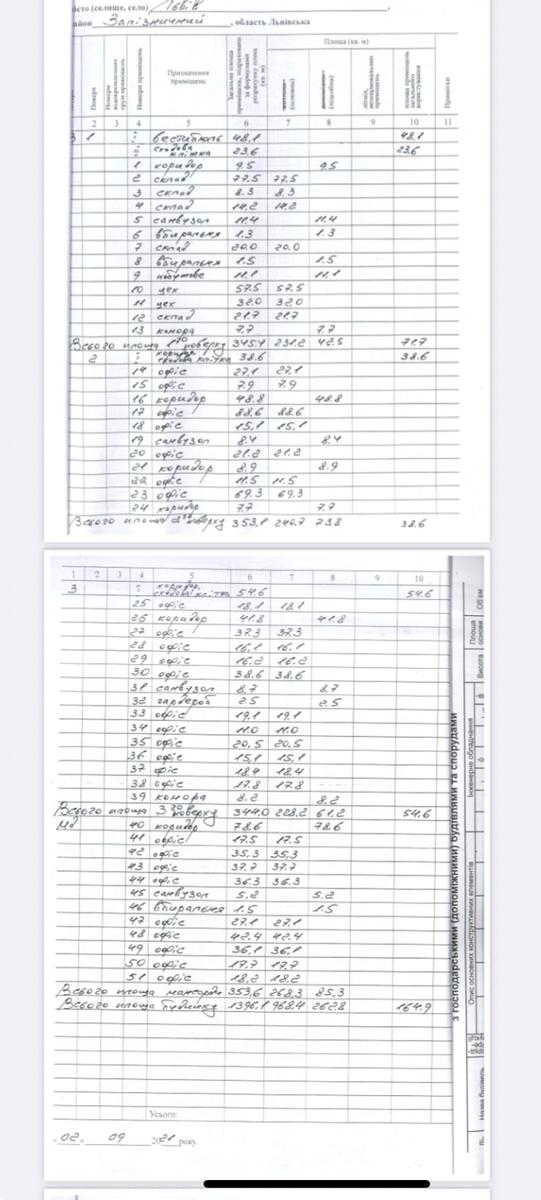 істо (селище, село) Львів,
айон Залізничний, область Львівська
Площа (кв. м)
Номери
Номери приміщень
Призначення приміщень
(основна)
(підсобна)
Примітки
2 3 4 5 6 7 8 9 10 11
1 : вестибюль 48,1 48,1
: сходова клітка 23.6 23.6
1 коридор 9.5 9.5
2 склад 77.5 77.5
3 склад 8.3 8.3
4 склад 14.2 14.2
5 санвузол 11.4 11.4
6 вбиральня 1.3 1.3
7 склад 20.0 20.0
8 вбиральня 1.5 1.5
9 побутове 11.1 11.1
10 цех 57.5 57.5
11 цех 32.0 32.0
12 склад 21.7 21.7
13 комора 7.7 7.7
Всього площа 1го поверху 345.4 231.2 42.5 71.7
2 : коридор сходова клітка 38.6 38.6
14 офіс 27.1 27.1
15 офіс 7.9 7.9
16 коридор 48.8 48.8
17 офіс 88.6 88.6
18 офіс 15,1 15,1
19 санвузол 8.4 8.4
20 офіс 21.2 21.2
21 коридор 8.9 8.9
22 офіс 11.5 11.5
23 офіс 69.3 69.3
24 коридор 7.7 7.7
Всього площа 2го поверху 353,1 240.7 73.8 38.6
1 2 3 4 5 6 7 8 9 10
3 : коридор, сходова клітка 54.6 54.6
25 офіс 18.1 18.1
26 коридор 41.8 41.8
27 офіс 37.3 37.3
28 офіс 16.1 16.1
29 офіс 16.2 16.2
30 офіс 38.6 38.6
31 санвузол 8.7 8.7
32 гардероб 2.5 2.5
33 офіс 19.1 19.1
34 офіс 11.0 11.0
35 офіс 20,5 20.5
36 офіс 15,1 15,1
37 офіс 18.4 18.4
38 офіс 17.8 17.8
39 комора 8.2 8.2
Всього площа 3го поверху 344.0 228,2 61.2 54.6
Мд 40 коридор 78.6 78.6
41 офіс 17.5 17.5
42 офіс 35,3 35,3
43 офіс 37.7 37.7
44 офіс 36.3 36.3
45 санвузол 5.2 5.2
46 вбиральня 1.5 1.5
47 офіс 27.1 27.1
48 офіс 42.4 42.4
49 офіс 36,1 36,1
50 офіс 17.7 17.7
51 офіс 18,2 18.2
Всього площа мансарди 353,6 268,3 85.3
Всього площа будинку 1396,1 968.4 262.8 164.9
Усього:
„ 02 „ 09 2021 року.
з господарськими (допоміжними) будівлями та спорудами
Опис основних конструктивних елементів
Інженерне обладнання
Висота
Площа основи
Об'єм